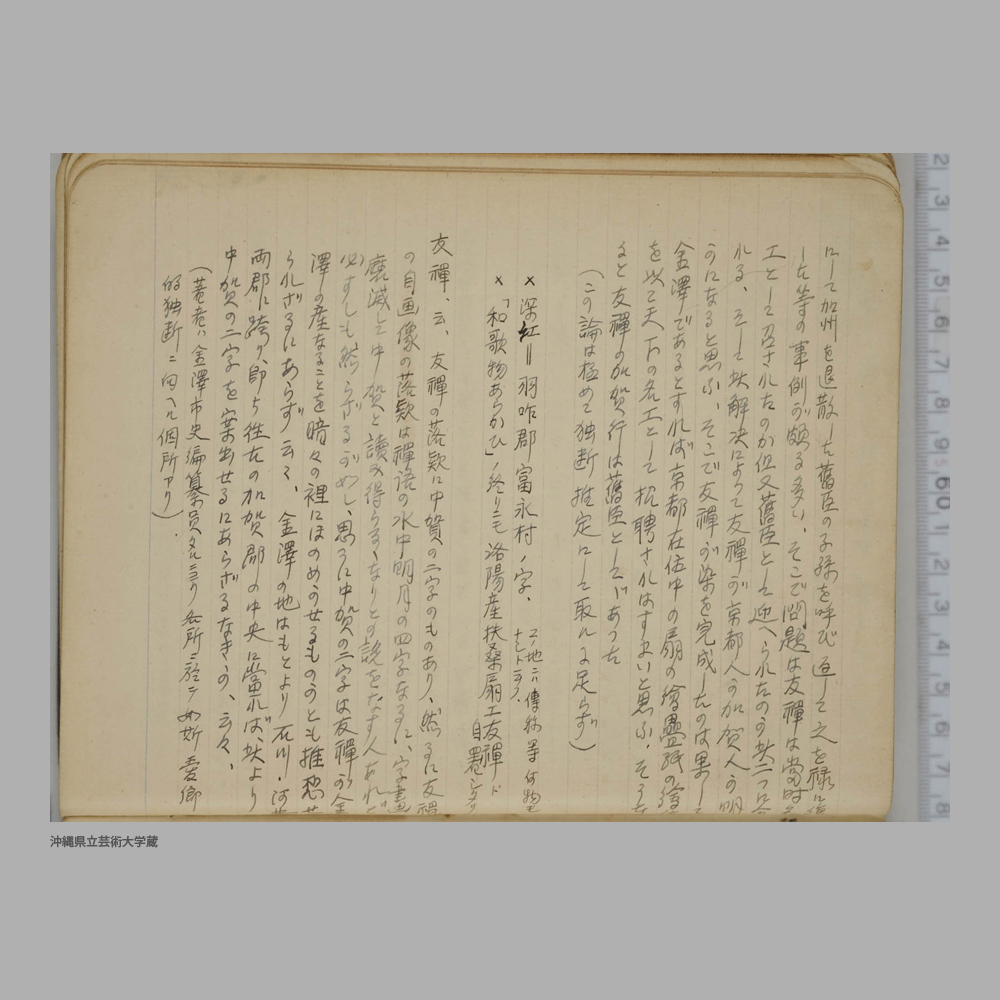 にして加州を退散した舊臣の子孫を呼び返して之を禄に
した等の事例が頗る多い、そこで問題は友禪は當時
工として召されたのか但又舊臣として迎へられたのか此二つに
れる、そして此解決によつて友禪が京都人か加賀人か明
かになると思ふ、そこで友禪が染を完成したのは果して
金澤であるとすれば京都在住中の扇の繪疊紙の繪
を以て天下の名工として招聘されはすまいと思ふ、そうす
ると友禪の加賀行は舊臣としてであつた
(この論は極めて独断推定にして取るに足らず)
× 深紅=羽咋郡富永村ノ字、コノ地ニハ傳称等何物モ
ナシト云フ、
×「和歌物あらかひ」ノ終リニモ 洛陽産扶桑扇工友禪ト
自署シアリ
友禪、云、友禪の落款に中賀の二字のものあり、然るに友禪
の自画像の落款は禪語の水中明月の四字なるに、字畫
磨滅して中賀と讀み得らるゝなりとの説をなす人あれど
必ずしも然らざるが如し、思ふに中賀の二字は友禪が金
澤の産なることを暗々の裡にほのめかせるものかとも推想せ
られざるにあらず云々、金澤の地はもとより石川・河北
両郡に跨り、即ち往古の加賀郡の中央に當れば、此より
中賀の二字を案出せるにあらざるなきか、云々、
(著者ハ金澤市史編纂員タルニヨリ各所ニ於テ如斯愛郷
的独断ニ向ヘル個所アリ)
2 3 4 5 6 7 8 9 60 1 2 3 4 5 6 7 8
沖縄県立芸術大学蔵